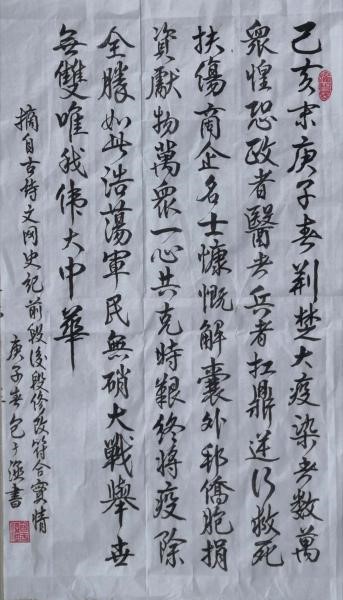 己亥末庚子春荆楚大疫染者數萬
衆惶恐政者醫者兵者扛鼎逆行救死
扶傷商企名士慷慨解囊外邦僑胞捐
資獻物萬衆一心共克時艱終將疫除
全勝如此浩蕩軍民無硝大戰舉世
無雙唯我偉大中華
摘自古詩文网史記前毀後毀修改符合實情
庚子春包于
書